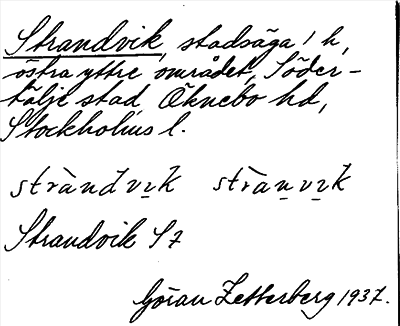 Strandvik, stadsäga 1 h,
östra yttre området, Söder-
tälje stad Öknebo hd,
Stockholms l.
stràndvɪk stràn̠vɪk
Strandvik S 7
Göran Zetterberg 1937.